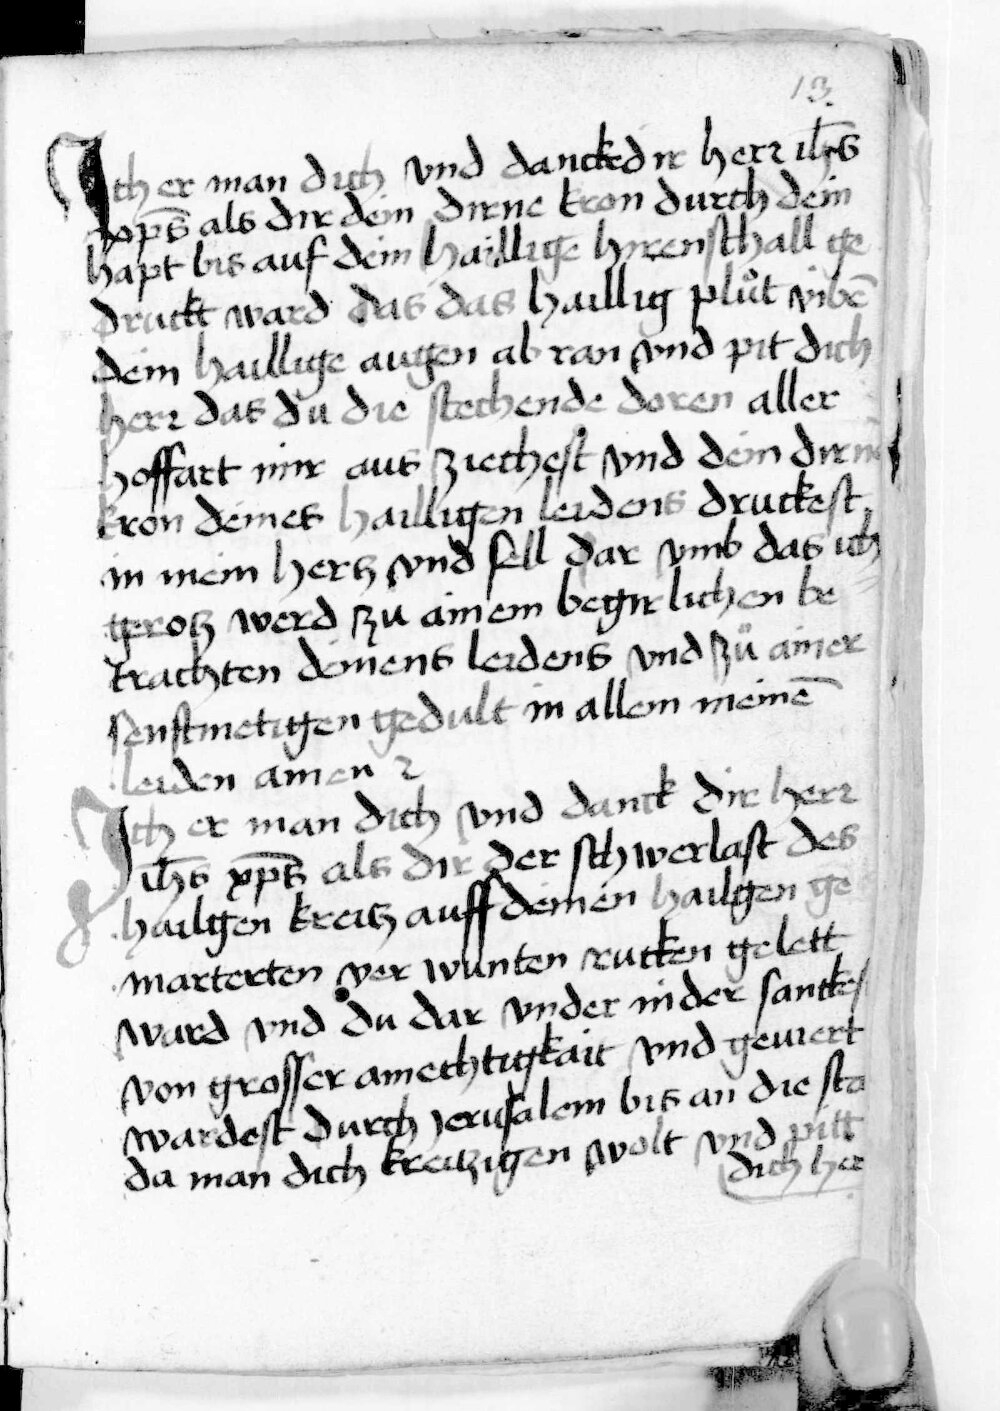 13.
Ich er man dich vnd danck dir herr ih̄s
xp̄s als dir dein dirne kron durch dein
hapt bis auf dein haillige hirensthall ge
druckt ward das das haillig plůt vibē
dein haillige augen ab ran vnd pit dich
herr das du die stechende doren aller
hoffart mir aus ziechest vnd dein dirne
kron deines hailligen leidens druckest
in mein hertz vnd sell dar vmb das ich
gerotz werd zu ainem begirlichen be
trachten deinens leidens vnd zů ainer
senstmetigen gedult in allem meinē
leiden amen
Ich er man dich vnd danck dir herr
ih̄s xp̄s als dir der schwerlast des
hailgen kreitz auff deinen hailgen ge
marterten ver wunten rucken gelett
ward vnd du dar vnder nider sanckest
von grosser amechtigkait vnd geuiert
wardest durch jerusalem bis an die sta
da man dich kreitzigen wolt vnd pitt
dich her